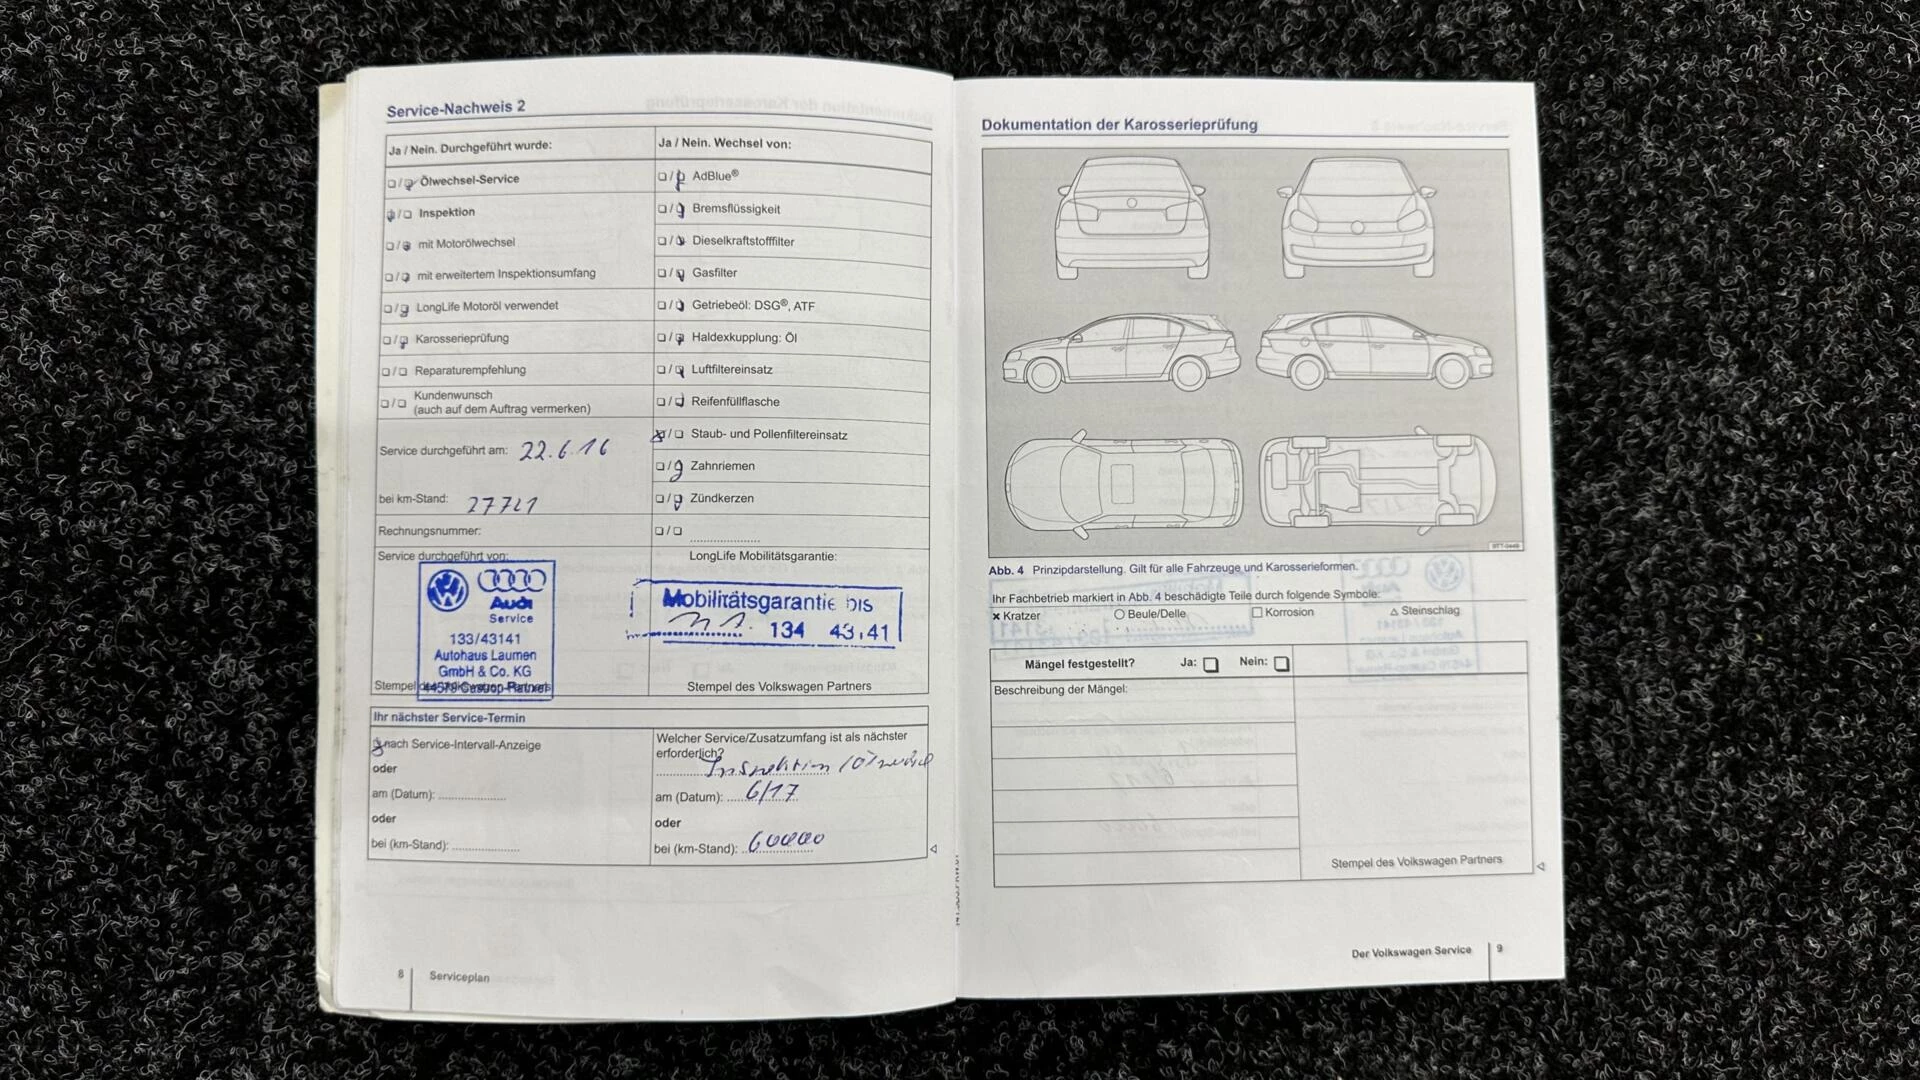 Service-Nachweis 2
Ja / Nein. Durchgeführt wurde:
Ölwechsel-Service
Inspektion
mit Motorölwechsel
mit erweitertem Inspektionsumfang
LongLife Motoröl verwendet
Karosserieprüfung
Reparaturempfehlung
Kundenwunsch
(auch auf dem Auftrag vermerken)
Service durchgeführt am: 22.6.16
bei km-Stand: 27721
Rechnungsnummer:
Service durchgeführt von:
Audi
Service
133/43141
Autohaus Laumen
GmbH & Co. KG
44579 Castrop-Rauxel
Stempel
Ja / Nein. Wechsel von:
AdBlue®
Bremsflüssigkeit
Dieselkraftstofffilter
Gasfilter
Getriebeöl: DSG®, ATF
Haldexkupplung: Öl
Luftfiltereinsatz
Reifenfüllflasche
Staub- und Pollenfiltereinsatz
Zahnriemen
Zündkerzen
LongLife Mobilitätsgarantie:
Mobilitätsgarantie bis
134 43141
Stempel des Volkswagen Partners
Ihr nächster Service-Termin
nach Service-Intervall-Anzeige
oder
am (Datum):
oder
bei (km-Stand):
Welcher Service/Zusatzumfang ist als nächster
erforderlich?
Inspektion
am (Datum): 6/17
oder
bei (km-Stand): 60000
8 Serviceplan
Dokumentation der Karosserieprüfung
Abb. 4 Prinzipdarstellung. Gilt für alle Fahrzeuge und Karosserieformen.
Ihr Fachbetrieb markiert in Abb. 4 beschädigte Teile durch folgende Symbole:
× Kratzer ○ Beule/Delle □ Korrosion △ Steinschlag
Mängel festgestellt? Ja: Nein:
Beschreibung der Mängel:
Stempel des Volkswagen Partners
Der Volkswagen Service 9